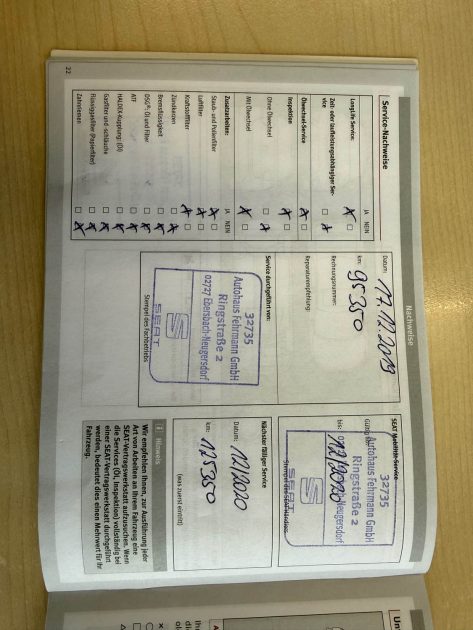 Nachweise
Service-Nachweise
JA NEIN
LongLife Service:
Zeit- oder laufleistungsabhängiger Ser-
vice
Ölwechsel-Service
Inspektion
Ohne Ölwechsel
Mit Ölwechsel
Zusatzarbeiten: JA NEIN
Staub- und Pollenfilter
Luftfilter
Kraftstofffilter
Zündkerzen
Bremsflüssigkeit
DSG®: Öl und Filter
ATF
HALDEX-Kupplung: (Öl)
Gasfilter und -schläuche
Flüssiggasfilter (Papierfilter)
Zahnriemen
22
Datum: 17.12.2019
km: 95350
Rechnungsnummer:
Reparaturempfehlung:
Service durchgeführt von:
32735
Autohaus Fehrmann GmbH
Ringstraße 2
02727 Ebersbach-Neugersdorf
SEAT
Stempel des Fachbetriebs
SEAT Mobilität-Service
bis: 12/2020
32735
Autohaus Fehrmann GmbH
Ringstraße 2
SEAT
Nächster fälliger Service
Datum: 12/2020
km: 125350
(was zuerst eintritt)
Hinweis
Wir empfehlen Ihnen, zur Ausführung jeder
Art von Arbeiten an Ihrem Fahrzeug eine
SEAT-Vertragswerkstatt aufzusuchen. Wenn
die Services (Öl, Inspektion) vollständig bei
einer SEAT-Vertragswerkstatt durchgeführt
werden, bedeutet dies einen Mehrwert für Ihr
Fahrzeug.